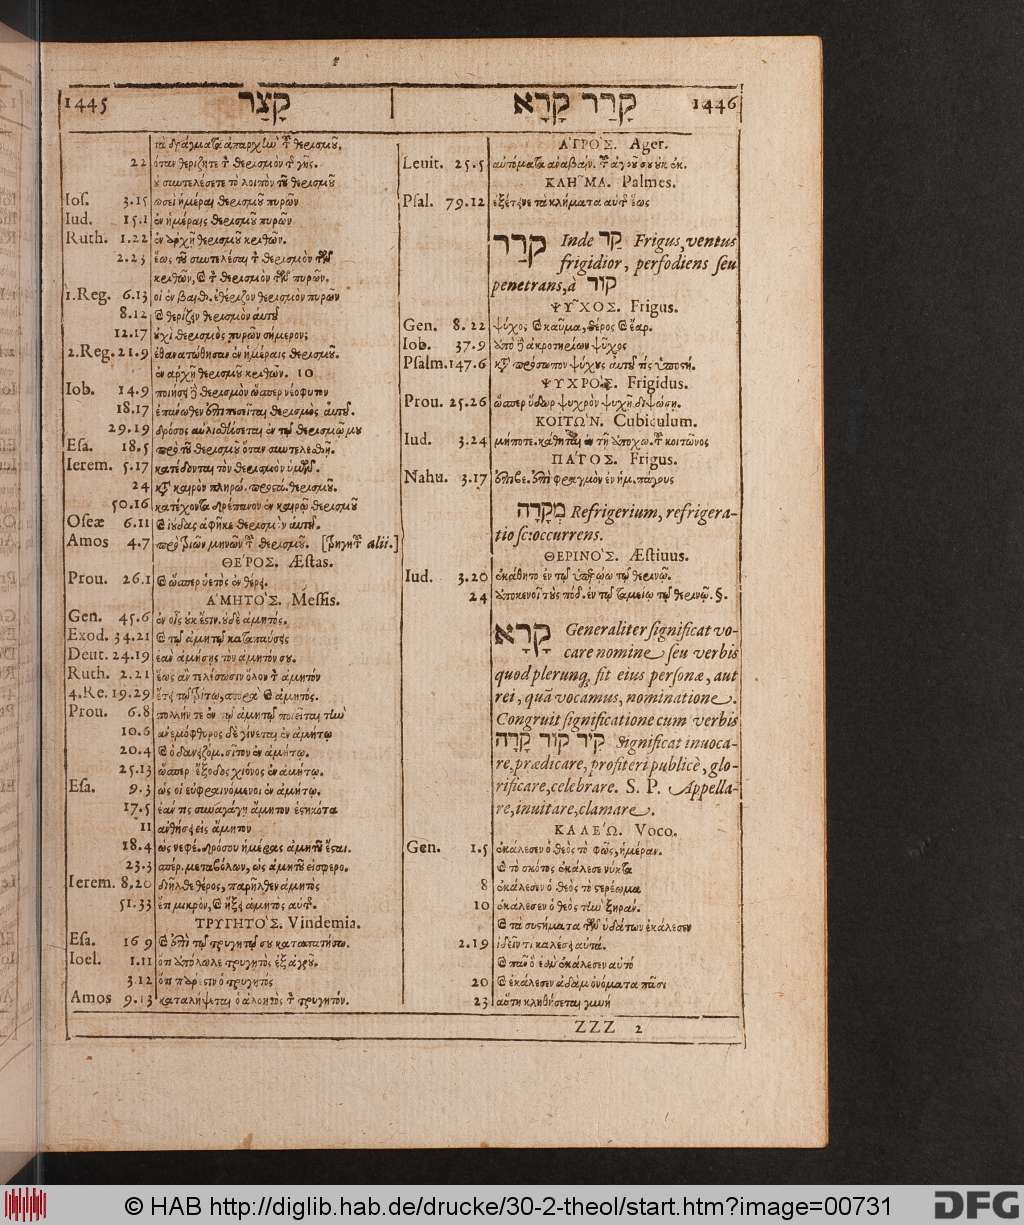 1445 קָצַר
τὰ δράγματα ἀπαρχὴν τ͂ θερισμοῦ.
22 ὅταν θερίζητε τ̀ θερισμὸν τ͂ γῆς.
οὐ συντελέσετε τὸ λοιπὸν τοῦ θερισμοῦ
Ios. 3.15 ὡσεὶ ἡμέραι θερισμοῦ πυρῶν
Iud. 15.1 ἐν ἡμέραις θερισμοῦ πυρῶν
Ruth. 1.22 ἐν ἀρχῇ θερισμοῦ κριθῶν.
2.23 ἕως τοῦ συντελέσαι τ̀ θερισμὸν τῶν
κριθῶν, καὶ τ̀ θερισμὸν τῶν πυρῶν.
1.Reg. 6.13 οἱ ἐν βαιθ. ἐθέριζον θερισμὸν πυρῶν
8.12 καὶ θερίζειν θερισμὸν αὐτοῦ
12.17 οὐχὶ θερισμὸς πυρῶν σήμερον;
2.Reg. 21.9 ἐθανατώθησαν ἐν ἡμέραις θερισμοῦ.
ἐν ἀρχῇ θερισμοῦ κριθῶν. 10
Iob. 14.9 ποιήσει θερισμὸν ὥσπερ νεόφυτον
18.17 ἐπάνωθεν ἐπιπεσεῖται θερισμὸς αὐτοῦ.
29.19 δρόσος αὐλισθήσεται ἐν τῷ θερισμῷ μου
Esa. 18.5 πρὸ τοῦ θερισμοῦ ὅταν συντελεσθῇ.
Ierem. 5.17 κατέδονται τὸν θερισμὸν ὑμῶν.
24 κατὰ καιρὸν πληρώ. προστά. θερισμοῦ.
50.16 κατέχοντα δρέπανον ἐν καιρῷ θερισμοῦ
Oseæ 6.11 καὶ ἰούδας ἀφῆκε θερισμὸν αὐτοῦ.
Amos 4.7 πρὸ τριῶν μηνῶν τ͂ θερισμοῦ. [τρυγητ͂ alii.]
ΘΕ´ΡΟΣ. Æstas.
Prou. 26.1 καὶ ὥσπερ ὑετὸς ἐν θέρει.
Α´ΜΗΤΟ`Σ. Messis.
Gen. 45.6 ἐν οἷς οὐκ ἔστιν. οὐδὲ ἀμητός.
Exod. 34.21 καὶ τῷ ἀμητῷ καταπαύσεις
Deut. 24.19 ἐὰν ἀμήσῃς τὸν ἀμητόν σου.
Ruth. 2.21 ἕως ἂν τελέσωσιν ὅλον τ̀ ἀμητόν
4.Re. 19.29 ἔτει τῷ τρίτῳ, σπορὰ καὶ ἀμητός.
Prou. 6.8 πολλήν τε ἐν τῷ ἀμητῷ ποιεῖται τὴν
10.6 ἀνεμόφθορος δὲ γίνεται ἐν ἀμήτῳ
20.4 καὶ ὁ δανειζόμ. σῖτον ἐν ἀμήτῳ.
25.13 ὥσπερ ἔξοδος χιόνος ἐν ἀμήτῳ.
Esa. 9.3 ὡς οἱ εὐφραινόμενοι ἐν ἀμήτῳ.
17.5 ἐάν τις συναγάγῃ ἄμητον ἑστηκότα
11 ἀνθήσει εἰς ἄμητον
18.4 ὡς νεφέ. δρόσου ἡμέρας ἀμητοῦ ἔσται.
23.3 σπέρ. μεταβόλων, ὡς ἀμητοῦ εἰσφερο.
Ierem. 8.20 διῆλθε θέρος, παρῆλθεν ἀμητὸς
51.33 ἔτι μικρὸν, καὶ ἥξει ἀμητὸς αὐτῆ.
ΤΡΥΓΗΤΟ`Σ. Vindemia.
Esa. 16 9 καὶ ἐπὶ τῷ τρυγητῷ σου καταπατήσω.
Ioel. 1.11 ὅτι ἀπόλωλε τρυγητὸς ἐξ ἀγροῦ.
3.12 ὅτι πάρεστιν ὁ τρυγητός
Amos 9.13 καταλήψεται ὁ ἀλοητὸς τ̀ τρυγητόν.
קָרַר קָרָא 1446
Α´ΓΡΟ´Σ. Ager.
Leuit. 25.5 αὐτόματα ἀναβαίν. τ͂ ἀγροῦ σου οὐκ ἐκ.
ΚΛΗ͂ΜΑ. Palmes.
Psal. 79.12 ἐξέτεινε τὰ κλήματα αὐτῆς ἕως
קָרַר Inde קַר Frigus, ventus
frigidior, perfodiens seu
penetrans, à קוּר
ΨΥ͂ΧΟΣ. Frigus.
Gen. 8.22 ψύχος καὶ καῦμα, θέρος καὶ ἔαρ.
Iob. 37.9 ἀπὸ δὲ ἀκρωτηρίων ψῦχος
Psalm. 147.6 κατὰ πρόσωπον ψύχους αὐτοῦ τίς ὑποστή.
ΨΥΧΡΟ´Σ. Frigidus.
Prou. 25.26 ὥσπερ ὕδωρ ψυχρὸν ψυχῇ διψώσῃ.
ΚΟΙΤΩ`Ν. Cubiculum.
Iud. 3.24 μήποτε. κάθηται ἐν τῇ ἀποχω. τ͂ κοιτῶνος
ΠΑ´ΓΟΣ. Frigus.
Nahu. 3.17 ἐπιβέ. ἐπὶ φραγμὸν ἐν ἡμ. πάγους
מְקֵרָה Refrigerium, refrigera-
tio sc: occurrens.
ΘΕΡΙΝΟ`Σ. Æstiuus.
Iud. 3.20 ἐκάθητο ἐν τῷ ὑπερῴῳ τῷ θερινῷ.
24 ἀποκενοῖ τοὺς πόδ. ἐν τῷ ταμείῳ τῷ θερινῷ. §.
קָרָא Generaliter significat vo-
care nomine seu verbis
quod plerunq; fit eius personæ, aut
rei, quā vocamus, nominatione.
Congruit significatione cum verbis
קִיר קוּר קָרָה Significat inuoca-
re, prædicare, profiteri publicè, glo-
rificare, celebrare. S. P. Appella-
re, inuitare, clamare.
ΚΑΛΕ´Ω. Voco.
Gen. 1.5 ἐκάλεσεν ὁ θεὸς τὸ φῶς, ἡμέραν.
καὶ τὸ σκότος ἐκάλεσε νύκτα
8 ἐκάλεσεν ὁ θεὸς τὸ στερέωμα
10 ἐκάλεσεν ὁ θεὸς τὴν ξηράν.
καὶ τὰ συστήματα τῶν ὑδάτων ἐκάλεσεν
2.19 ἰδεῖν τί καλέσει αὐτά.
καὶ πᾶν ὃ ἐὰν ἐκάλεσεν αὐτό
20 καὶ ἐκάλεσεν ἀδὰμ ὀνόματα πᾶσι
23 αὕτη κληθήσεται γυνή
ZZZ 2
© HAB http://diglib.hab.de/drucke/30-2-theol/start.htm?image=00731
DFG